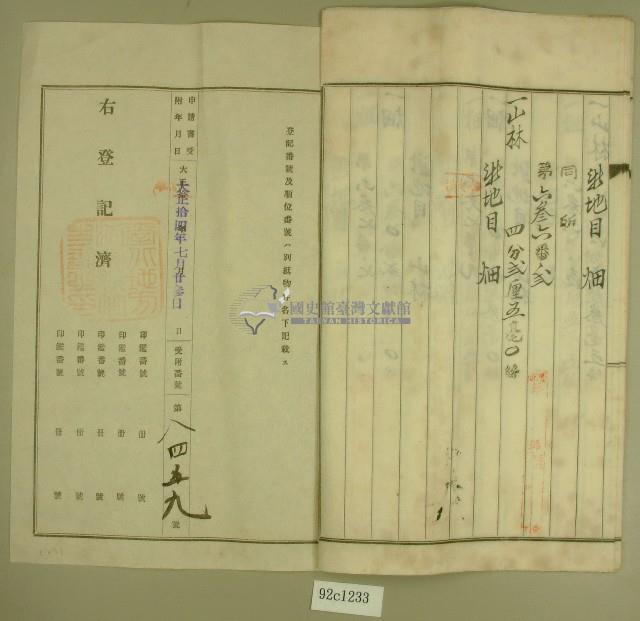 地目 畑
同所
第六参六番ノ弐
一山林 四分弐厘五毫〇絲
地目 畑
登記番號及順位番號ハ別紙物件名下記載ス
申請書受附年月日
大正拾四年七月廿参日
日
受附番號
第八四五九號
右登記濟
印鑑番號 冊 號
印鑑番號 冊 號
印鑑番號 冊 號
印鑑番號 冊 號
印鑑番號 冊 號
國史館臺灣文獻館
TAIWAN HISTORICA
92c1233